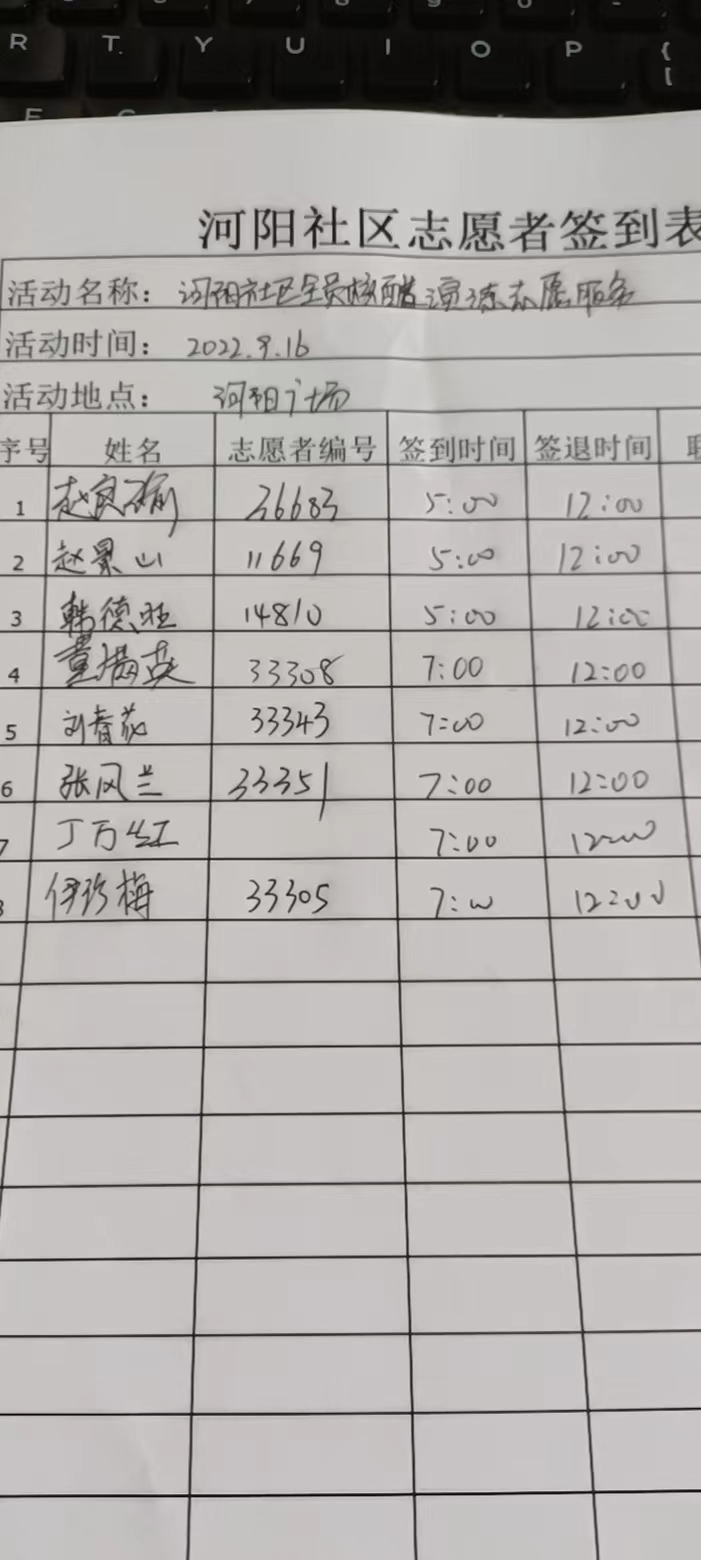 R T Y U I O P {
[
河阳社区志愿者签到表
活动名称：河阳社区全员核酸演练志愿服务
活动时间：2022.9.16
活动地点：河阳广场
序号 姓名 志愿者编号 签到时间 签退时间
1 赵 36683 5:00 12:00
2 赵景山 11669 5:00 12:00
3 韩德旺 14810 5:00 12:00
4 董 英 33308 7:00 12:00
5 刘春 33343 7:00 12:00
6 张风兰 33351 7:00 12:00
7 丁万红 7:00 12:00
8 伊珍梅 33305 7:00 12:00